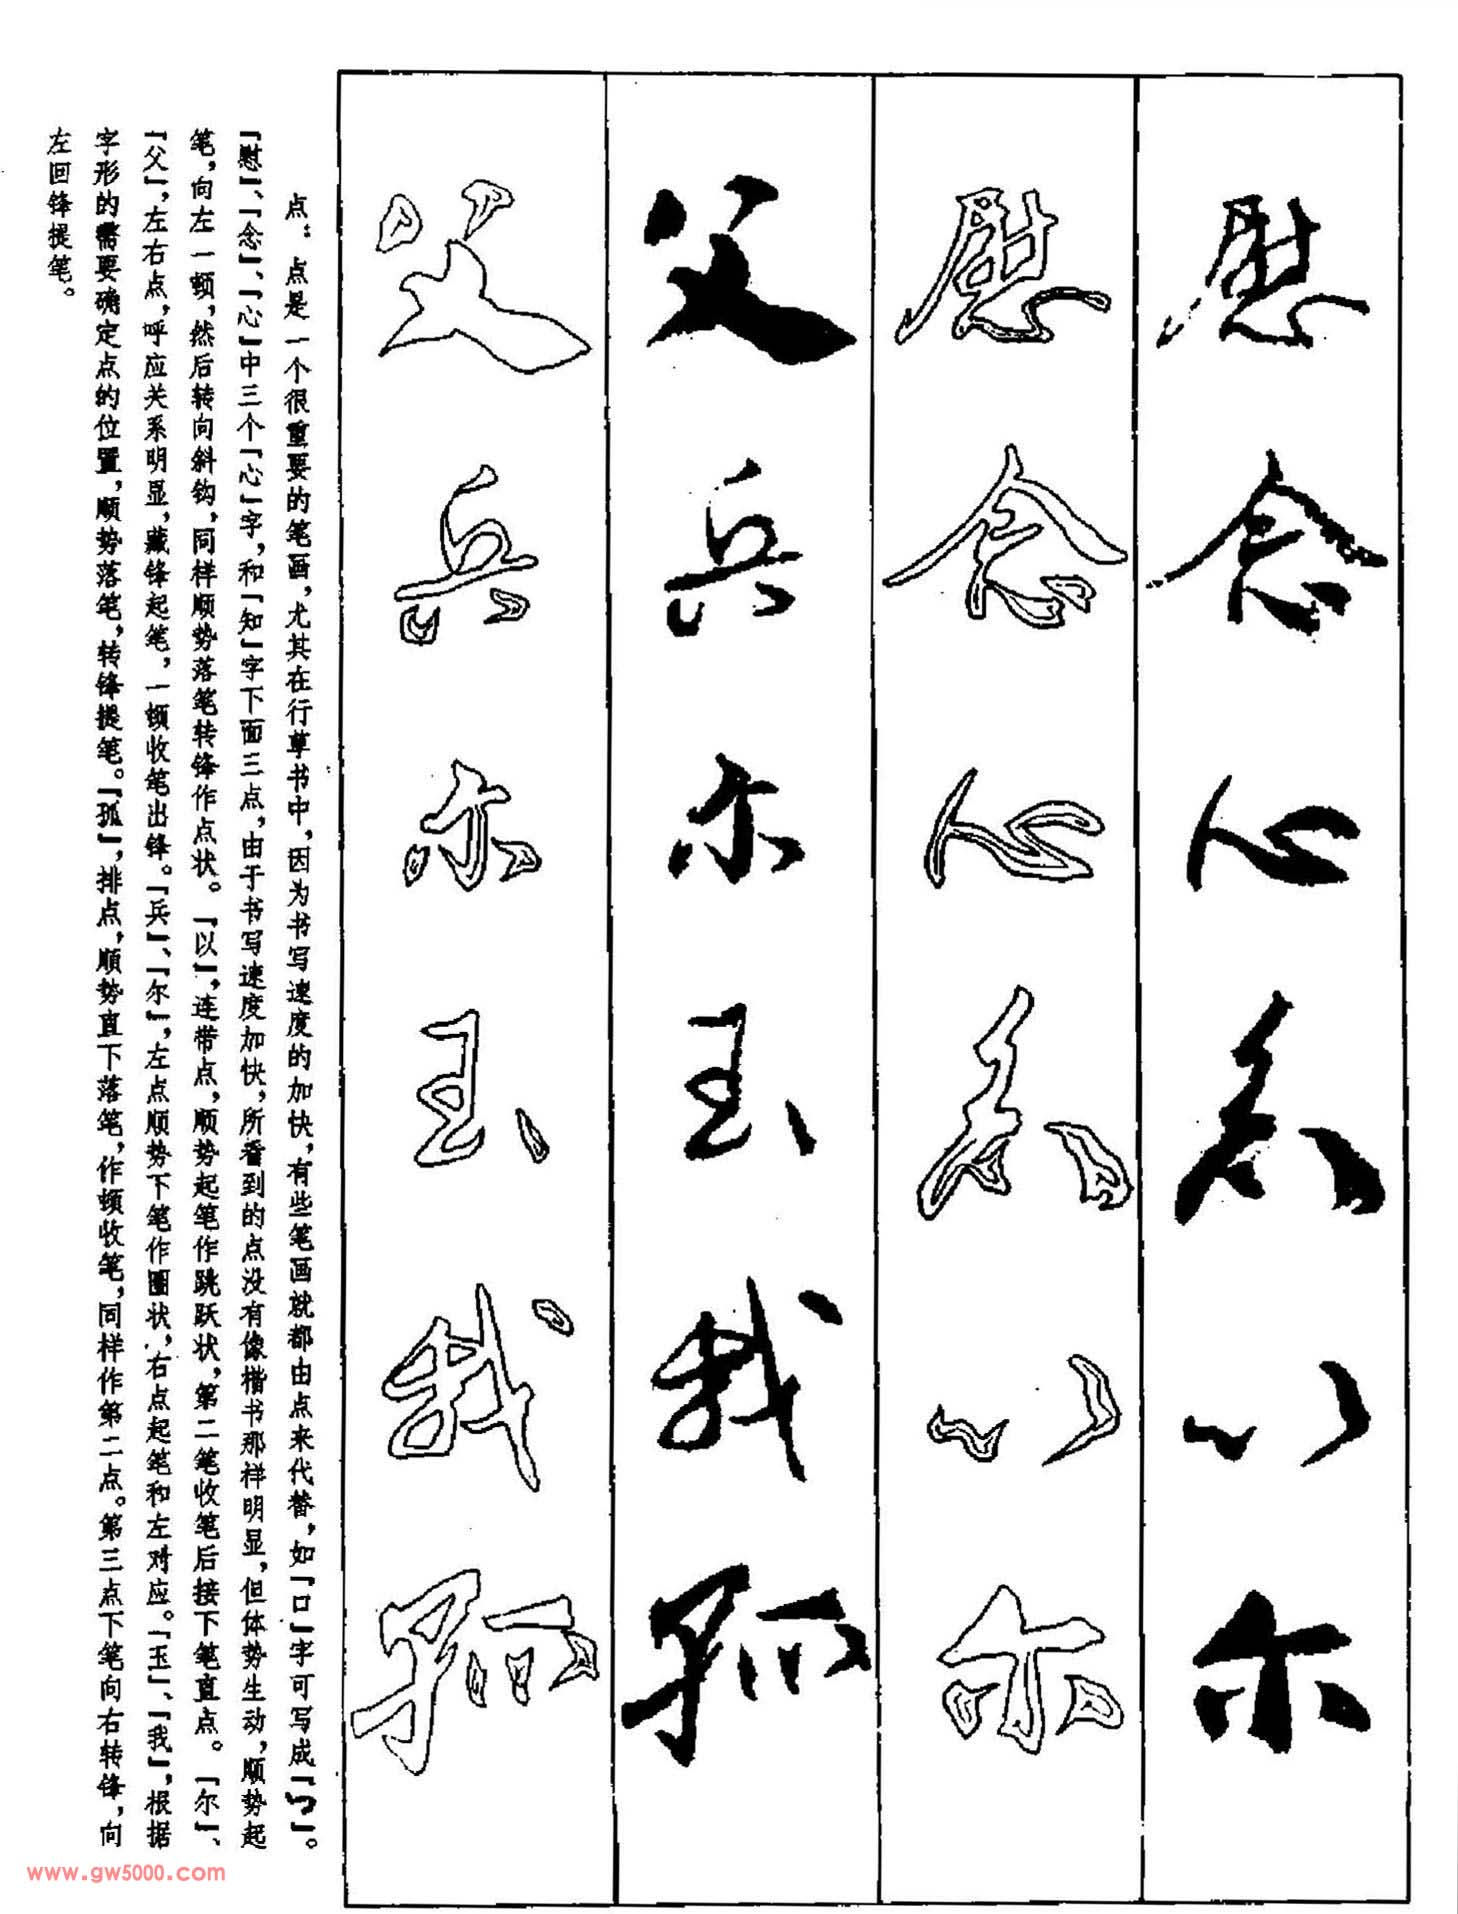 慰念心知以尔
慰念心知以尔
父兵尔玉我孤
父兵尔玉我孤
点：点是一个很重要的笔画，尤其在行草书中，因为书写速度的加快，有些笔画就都由点来代替，如「口」字可写成「」。
「慰」、「念」、「心」中三个「心」字，和「知」字下面三点，由于书写速度加快，所看到的点没有像楷书那样明显，但体势生动，顺势起
笔，向左一顿，然后转向斜钩，同样顺势落笔转锋作点状。「以」，连带点，顺势起笔作跳跃状，第二笔收笔后接下笔直点。「尔」、
「父」，左右点，呼应关系明显，藏锋起笔，一顿收笔出锋。「兵」、「尔」，左点顺势下笔作圈状，右点起笔和左对应。「玉」、「我」，根据
字形的需要确定点的位置，顺势落笔，转锋提笔。「孤」，排点，顺势直下落笔，作顿收笔，同样作第二点。第三点下笔向右转锋，向
左回锋提笔。
www.gw5000.com